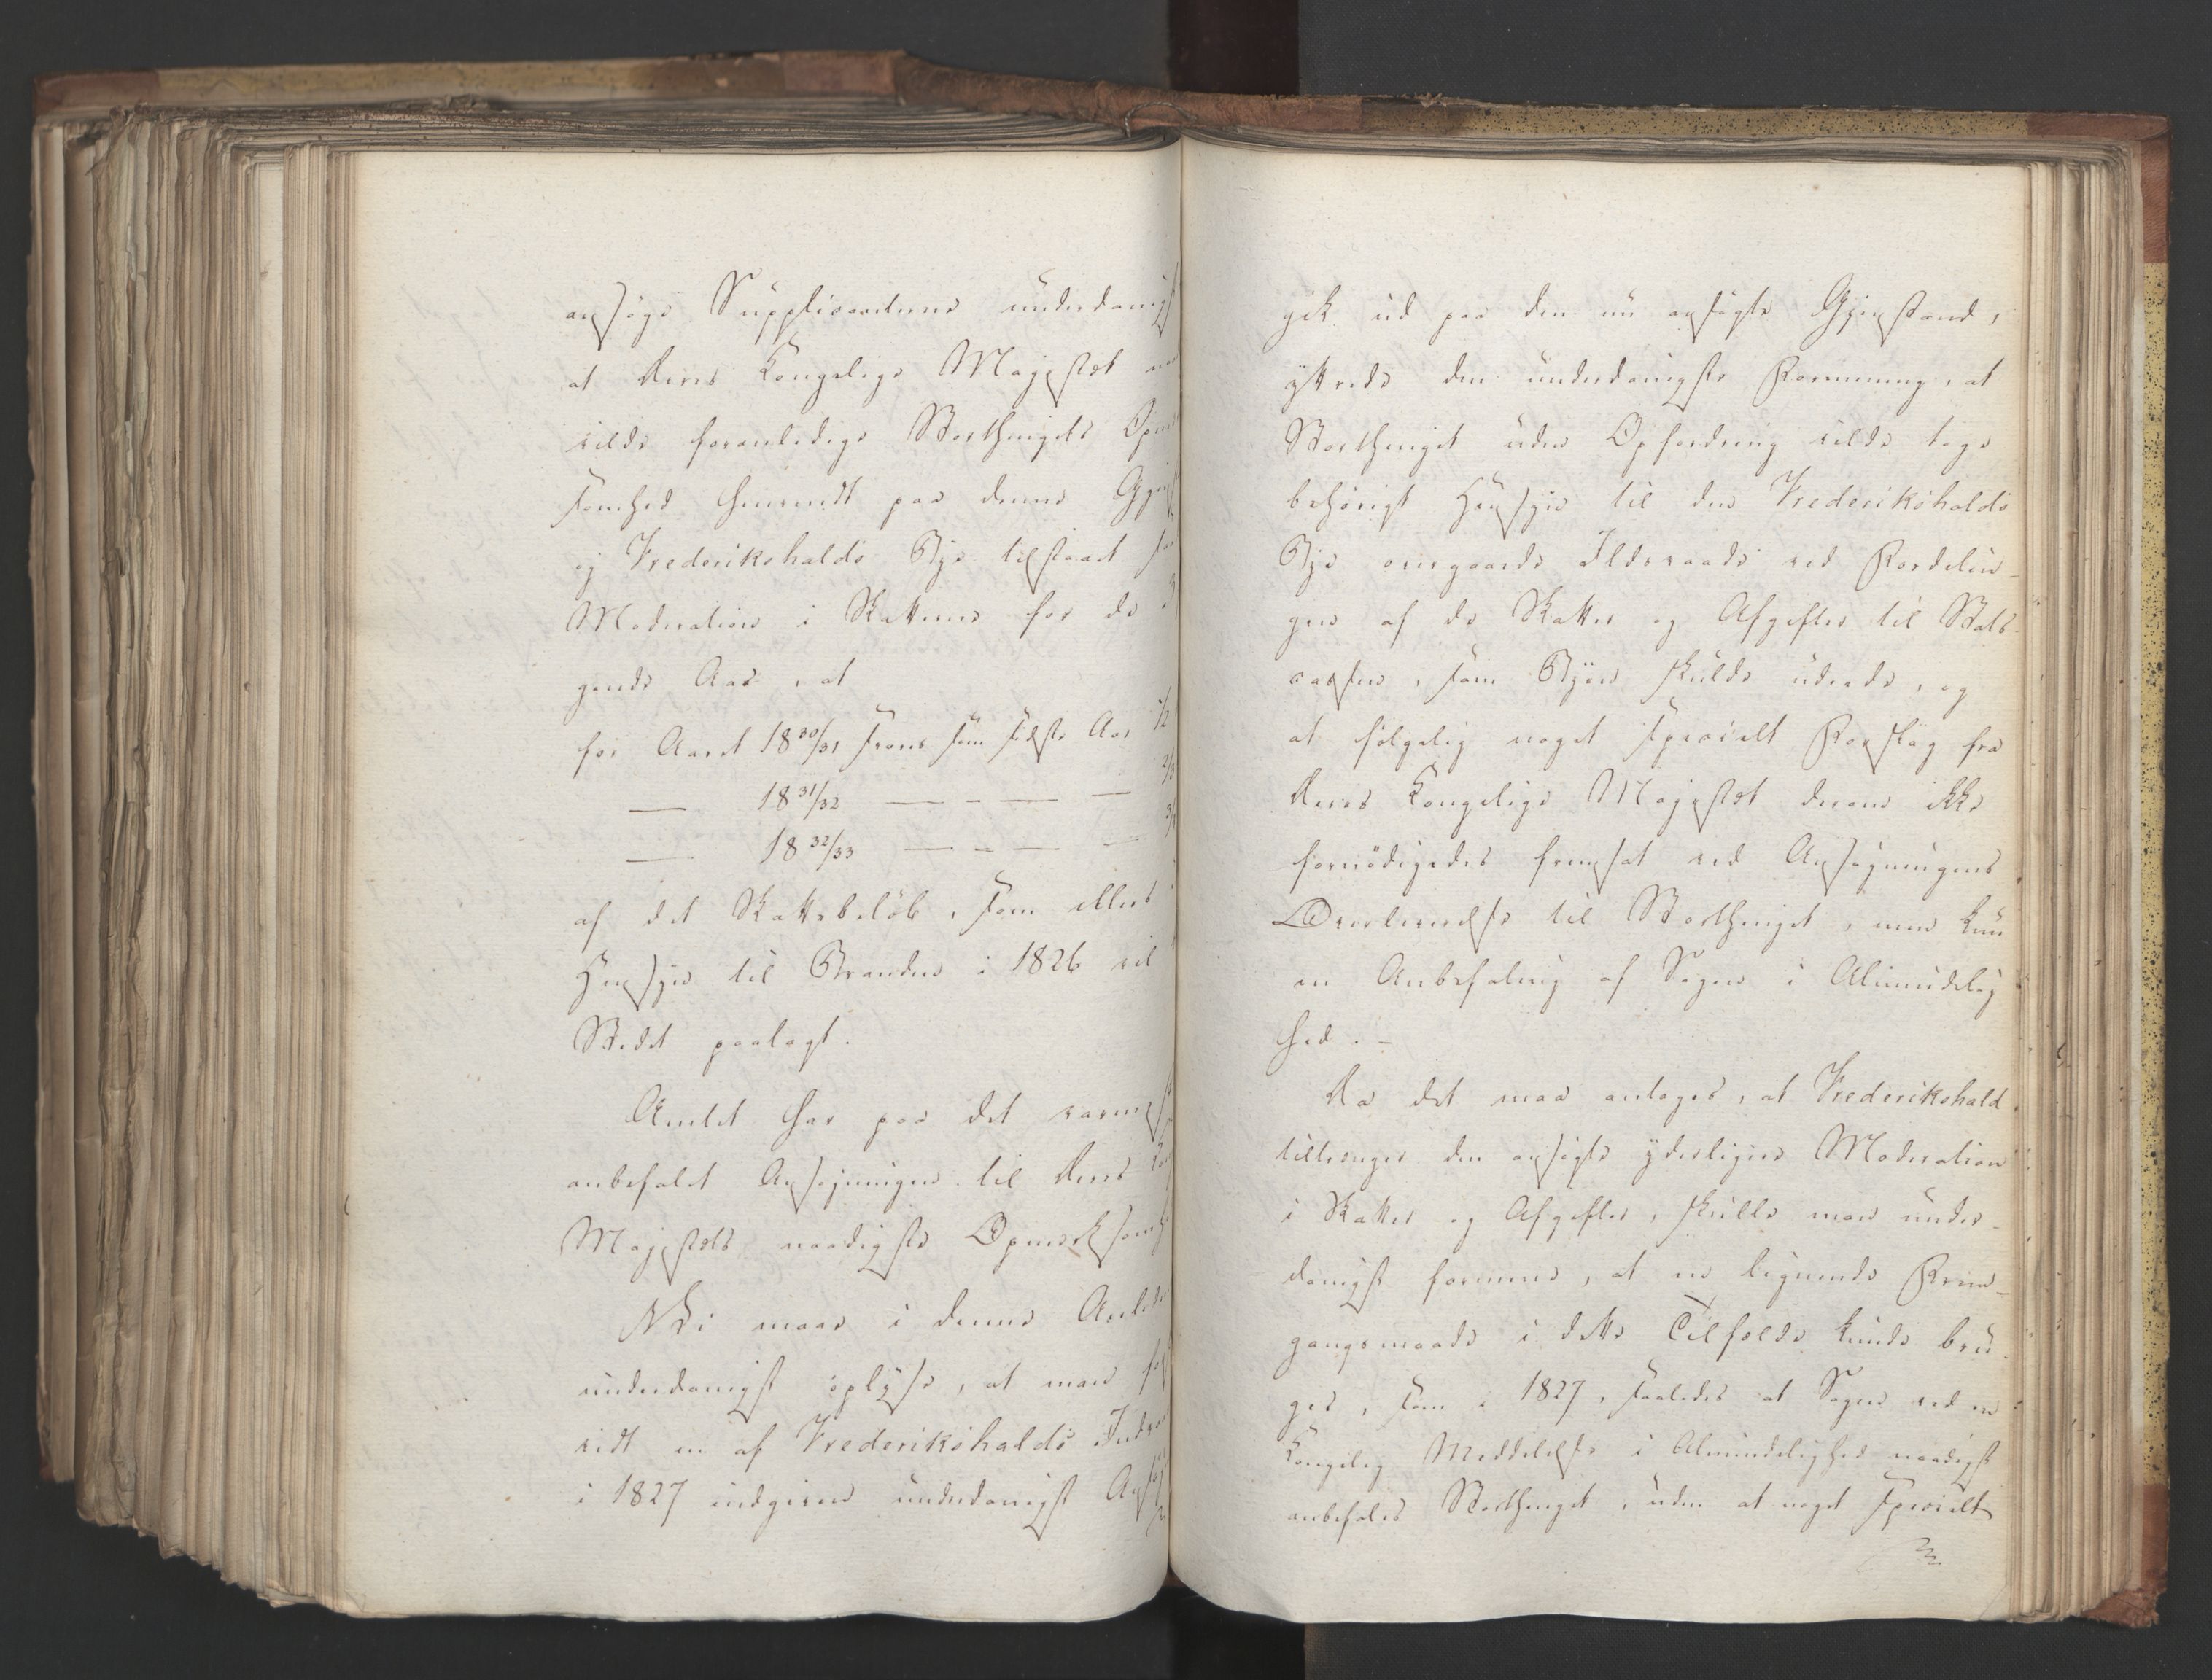 ansøge Supplicanterne underdanigst
at Deres Kongelige Majestæt
vilde foranledige Storthingets Opm
somhed henvendt paa denne Gjenst
og Frederikshalds Bye tilstaaet
Moderation i Skatterne for de 3
gende Aar, at
for Aaret 18 30/31 svares som sidste Aar 1/2
— 18 31/32 — - — — 2/3
— 18 32/33 — - — — 3/4
af det Skattebeløb, som ellers
Hensyn til Branden i 1826 vil
Stedet paalagt.
Amtet har paa det varmest
anbefalet Ansøgningen til Deres Kon
Majestæts naadigste Opmærksomh
Vi maae i denne Anled
underdanigst oplyse, at man
vidt en af Frederikshalds Indvaa
i 1827 indgiven underdanigst Ansøg
gik ud paa den nu ansøgte Gjenstand,
yttrede den underdanigste Formening, at
Storthinget uden Opfordring vilde tage
behørigt Hensyn til den Frederikshalds
Bye overgaaede Ildsvaade ved Fordelin-
gen af de Skatter og Afgifter til Stats-
cassen, som Byen skulde udrede, og
at følgelig noget specielt Forslag fra
Deres Kongelige Majestæt derom ikke
fornødigedes fremsat ved Ansøgningens
Oversendelse til Storthinget, men kun
en Anbefaling af Sagen i Almindelig
hed. -
Da det maa antages, at Frederikshald
tiltrænger den ansøgte yderligere Moderation
i Skatter og Afgifter, skulle man under-
danigst formene, at en lignende Frem-
gangsmaade i dette Tilfælde kunde bru-
ges, som i 1827, saaledes at Sagen ved en
Kongelig Meddelelse i Almindelighed naadigst
anbefales Storthinget, uden at noget specielt